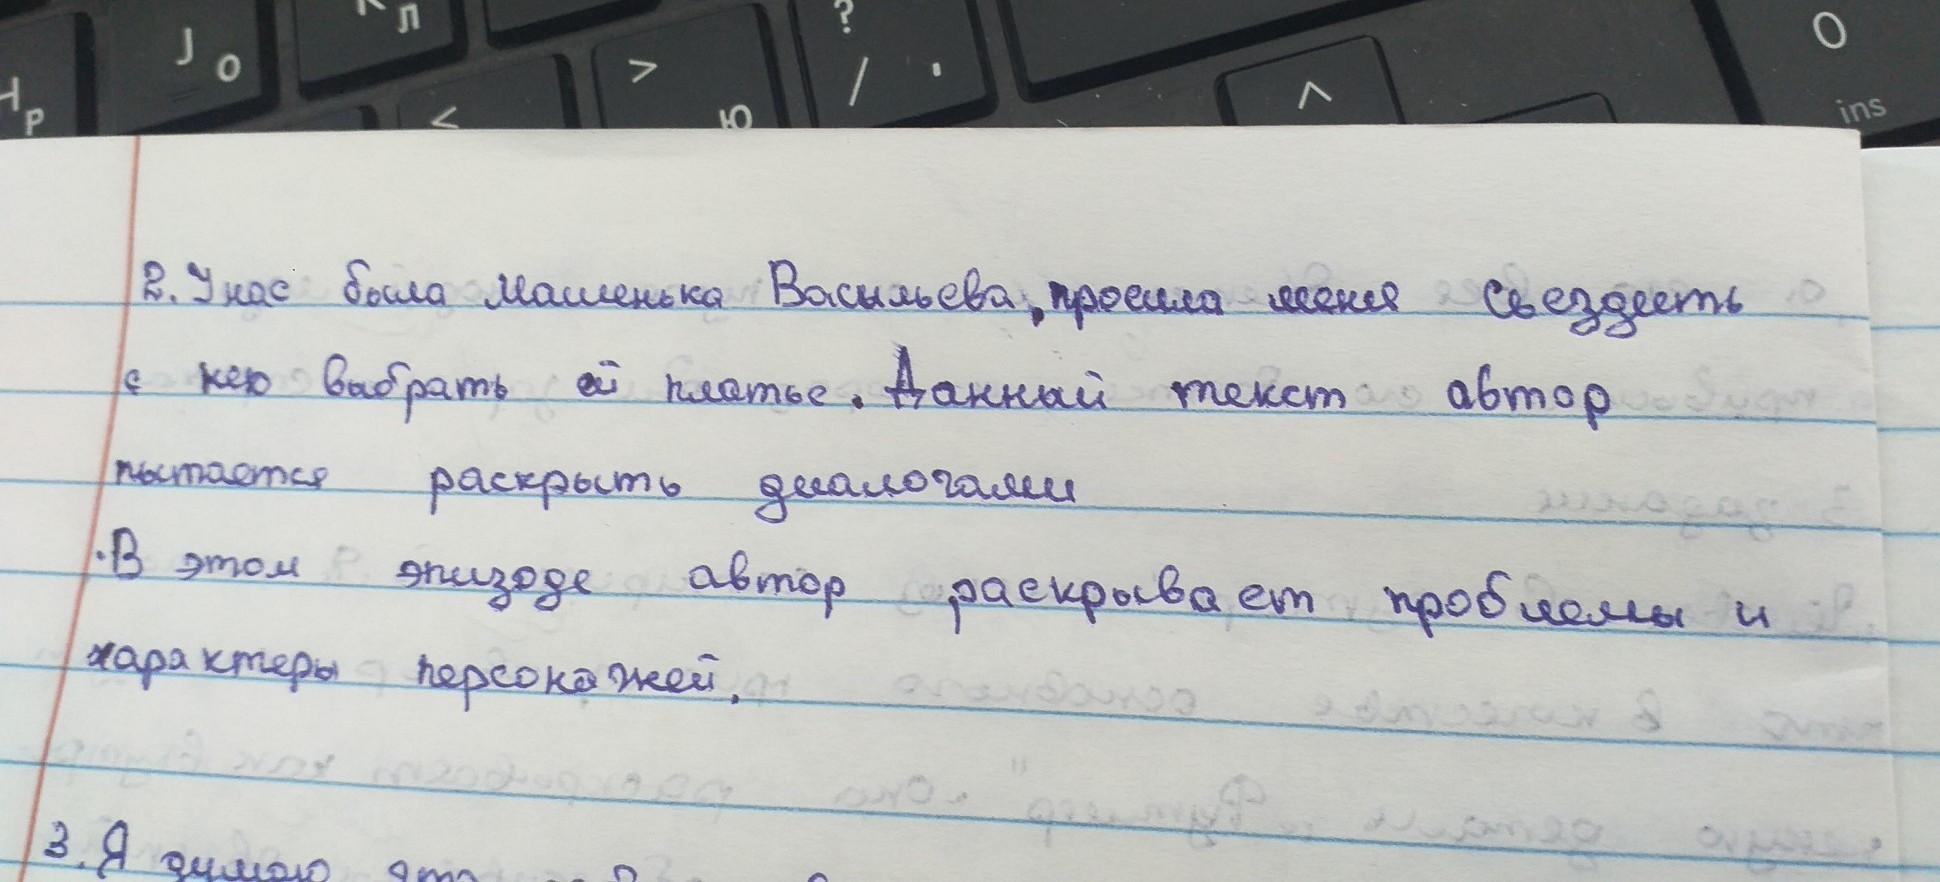 J О
Л
Н Р
<
> Ю
? / .
^
0 ins
2. У нас была Машенька Васильева, просила меня съездеть
с нею выбрать ей платье. Данный текст автор
пытается раскрыть диалогами
. В этом эпизоде автор раскрывает проблемы и
характеры персонажей.
3. Я думаю это